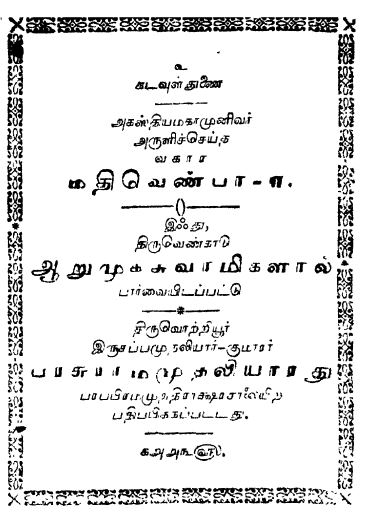 உ
கடவுள் துணை
அகஸ்தியமகாமுனிவர்
அருளிச்செய்த
வகார
மதிவெண்பா-எ.
இஃது,
திருவெண்காடு
ஆறுமுகசுவாமிகளால்
பார்வையிடப்பட்டு
திருவொற்றியூர்
இருசப்பமுதலியார்-குமாரர்
பரசுராமமுதலியாரது
பரப்பிரமமுத்திராக்ஷரசாலையிற்
பதிப்பிக்கப்பட்டது.